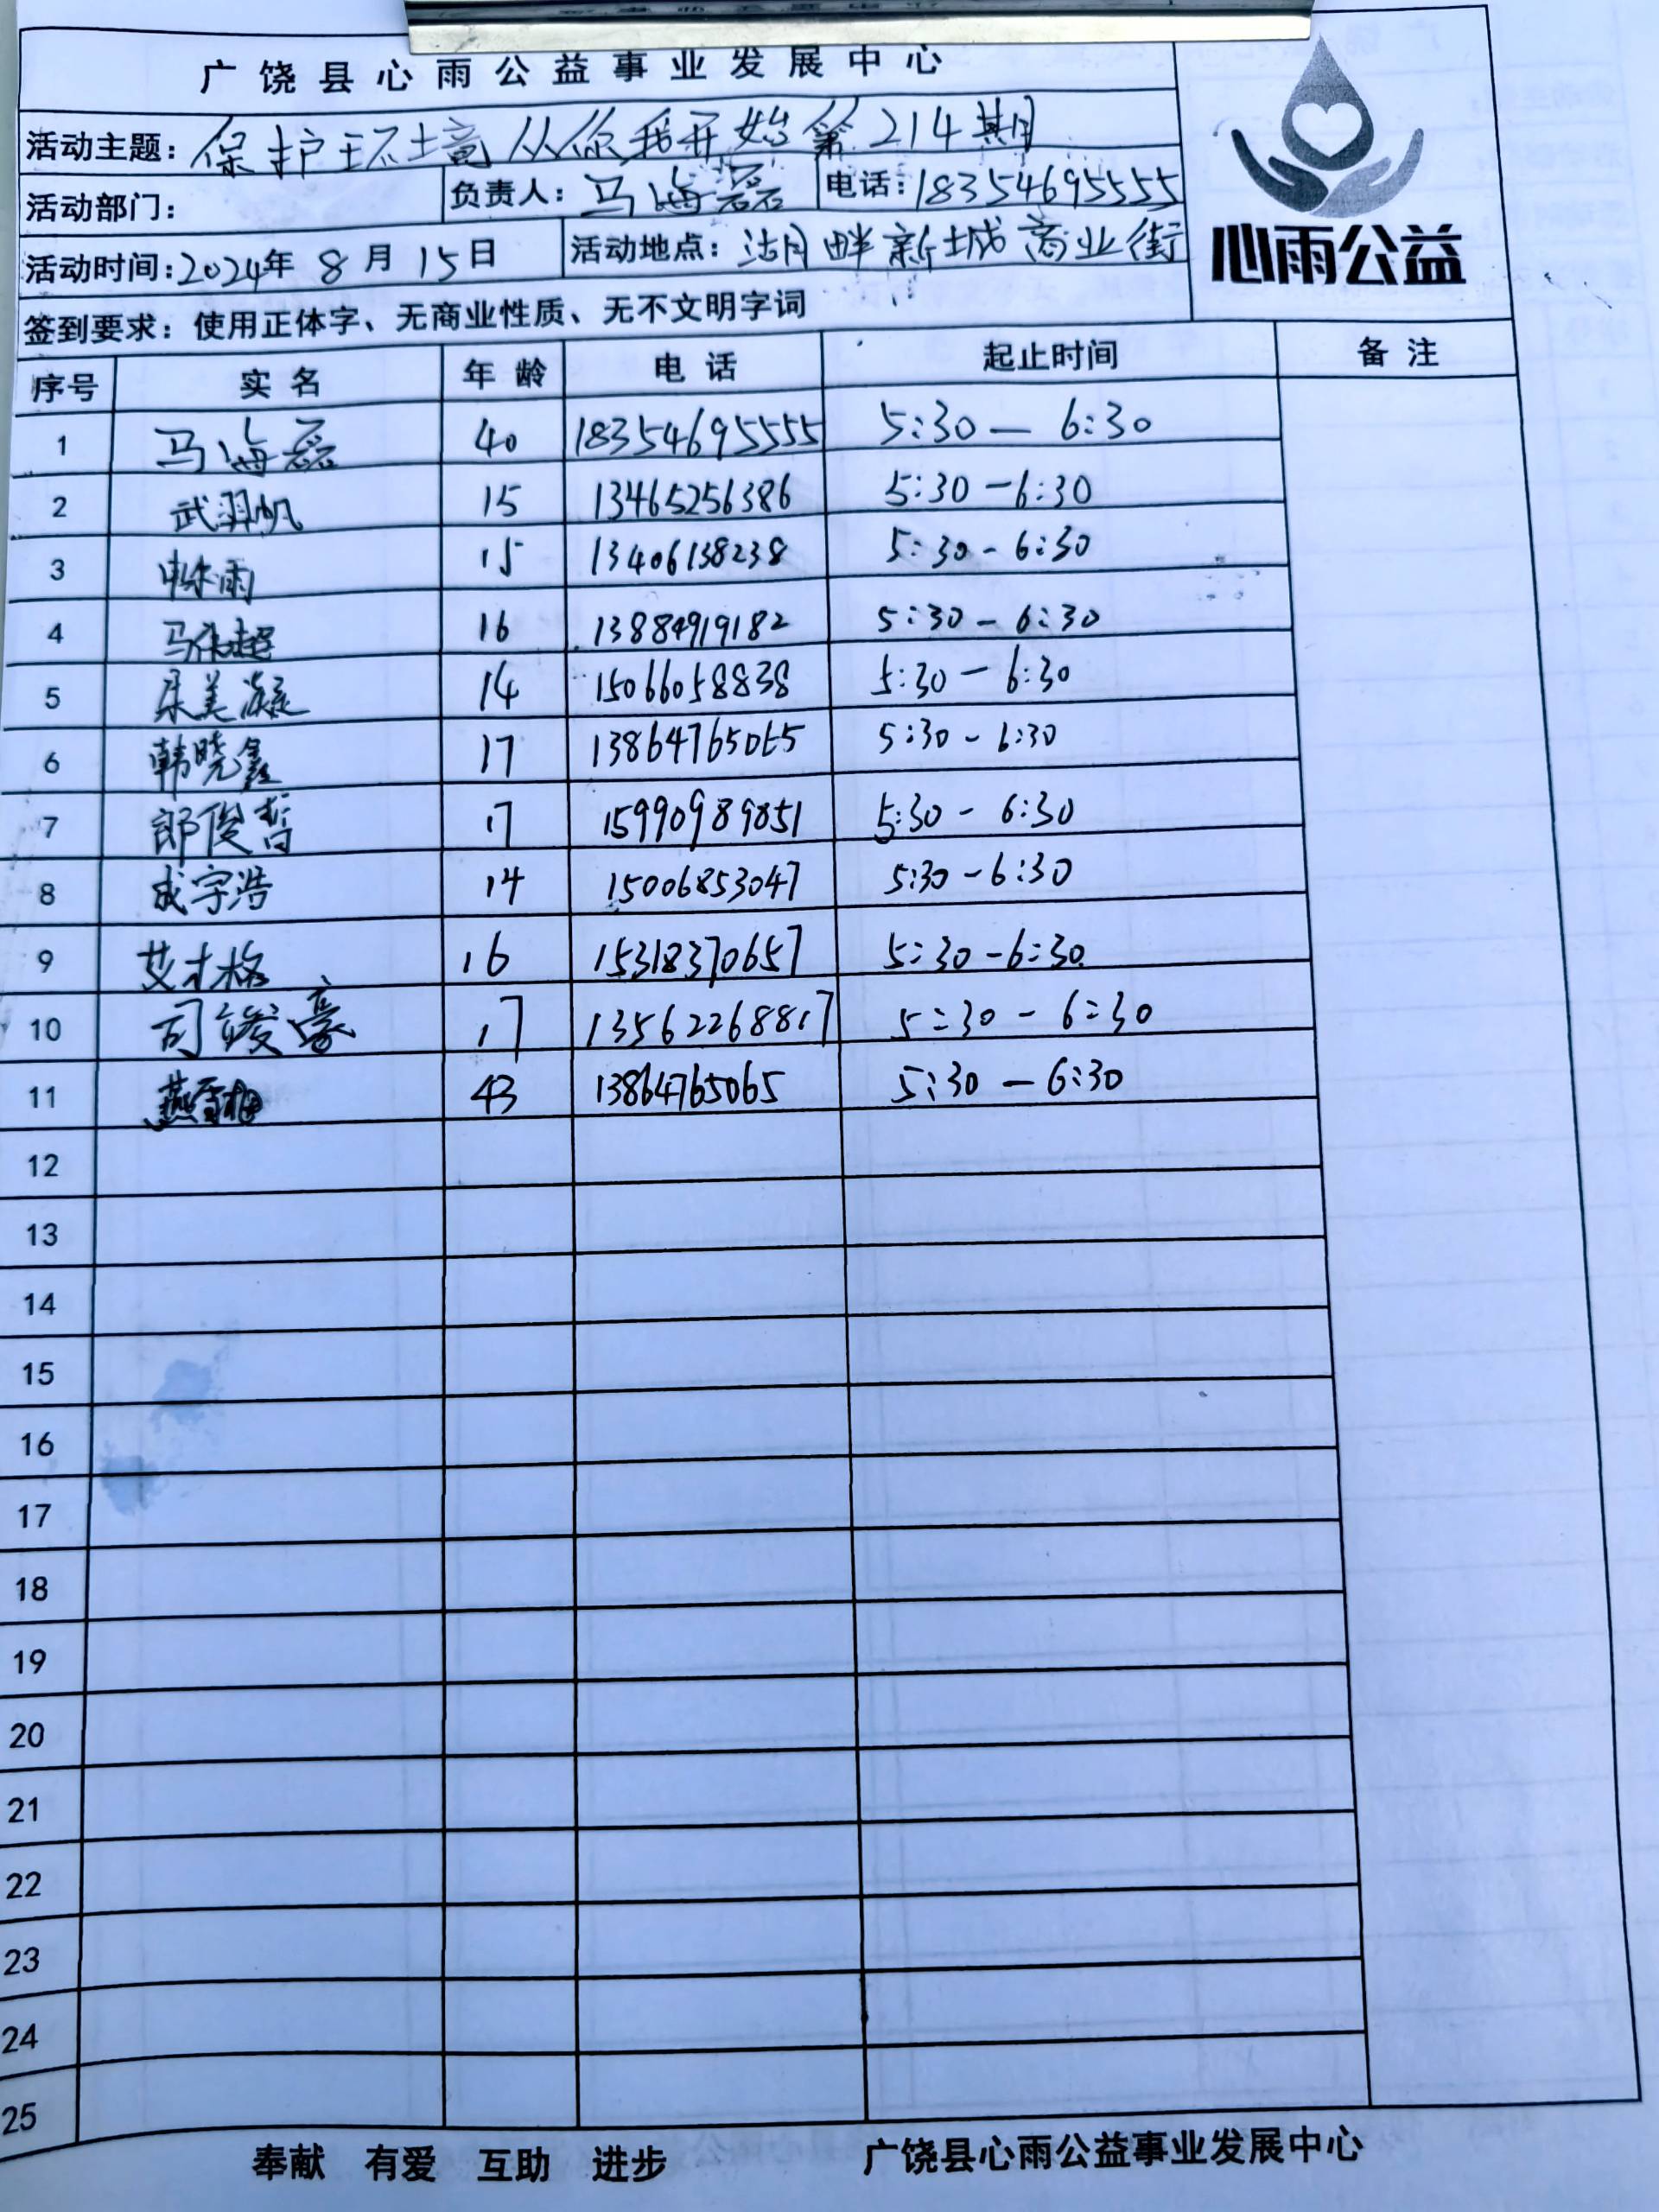 广饶县心雨公益事业发展中心
活动主题：保护环境从你我开始第214期
活动部门：　负责人：马海磊　电话：18354695555
心雨公益
活动时间：2024年8月15日　活动地点：湖畔新城商业街
签到要求：使用正体字、无商业性质、无不文明字词
序号　实名　年龄　电话　起止时间　备注
1　马海磊　40　18354695555　5:30—6:30
2　武羿帆　15　13465256386　5:30-6:30
3　15　13406138238　5:30-6:30
4　16　13884919182　5:30-6:30
5　14　15066058838　5:30-6:30
6　韩晓鑫　17　13864765065　5:30-6:30
7　郎俊哲　17　15990989851　5:30-6:30
8　成宇浩　14　15006853047　5:30-6:30
9　艾才格　16　15318370657　5:30-6:30
10　司竣豪　17　13562268817　5:30-6:30
11　43　13864765065　5:30—6:30
12
13
14
15
16
17
18
19
20
21
22
23
24
25
奉献　有爱　互助　进步　广饶县心雨公益事业发展中心